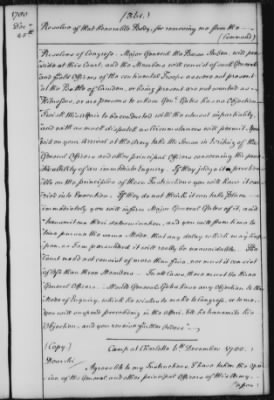 1780
Decr
25th
(Abs.)
Resolve of that Honorable Body, for removing me from the
(Command)
Resolves of Congress. Major General the Baron Steuben will pre-
side at this Court, and the Members will consist of such General
and Field Officers of the continental Troops as were not present
at the Battle of Camden, or being present are not wanted as
Witnesses, or are persons to whom Genl. Gates has no objection
that this affair to be conducted with the utmost impartiality,
and with as much dispatch as circumstances will permit. You
will on your Arrival at the Army take the Sense in Writing of the
General Officers and other principal Officers concerning the prac-
ticability of an immediate Inquiry. If they judge it practica-
ble on the principles of these Instructions you will have it car-
ried into Execution. If they do not think it can take place
immediately, you will inform Major General Gates of it, and
transmit me their determination, and you will from time to
time pursue the same Mode that any delay which may hap-
pen, as I am persuaded it will really be unavoidable. The
Court need not consist of more than five, nor must it consist
of less than three Members. In all cases, there must be three
General Officers. Should General Gates have any objection to the
Mode of Inquiry, which he wishes to make to Congress, or to me,
you will suspend proceeding in the affair, till he transmits his
Objection, and you receive further Orders."
(Copy)
Camp at Charlotte 6th December 1780.
Dear Sir
Agreeable to my Instructions, I have taken the opi-
nion of the General, and other principal Officers of this Army,